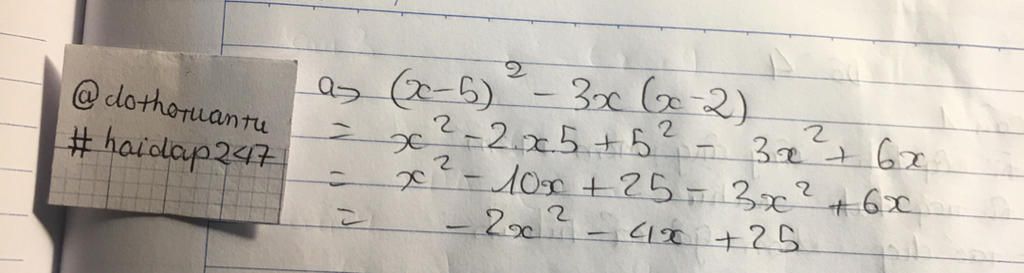 @dothotuantu
#hoidap247
a→ (x-5)² - 3x(x-2)
= x² - 2.x.5 + 5² - 3x² + 6x
= x² - 10x + 25 - 3x² + 6x
= - 2x² - 4x + 25